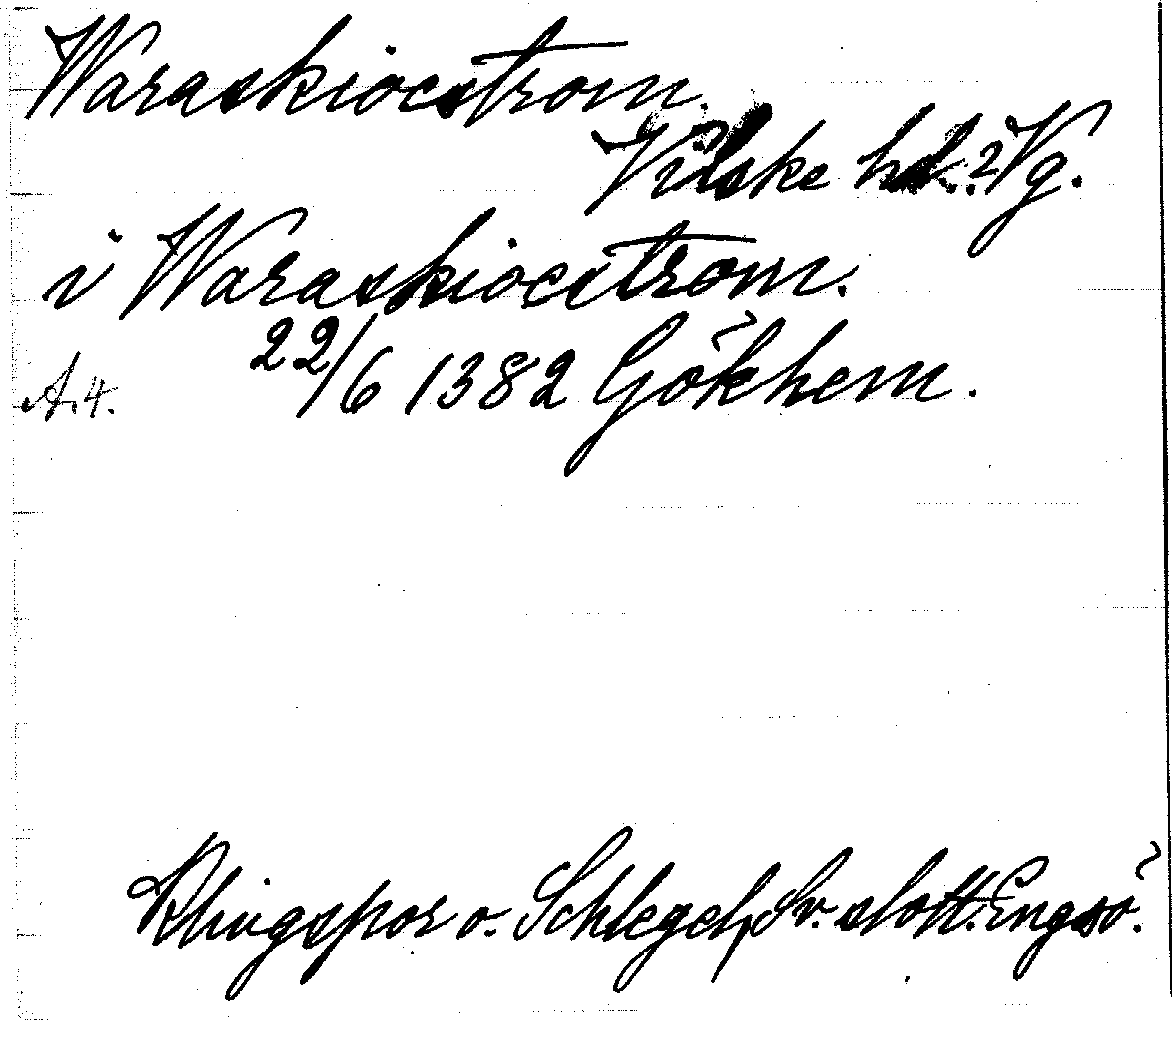 Waraskiocstrom.
Vilske hd.? Vg.
i Waraskiocstrom.
22/6 1382 Gökhem.
A.4.
Klingspor o. Schlegel, Sv. slott. Engsö.